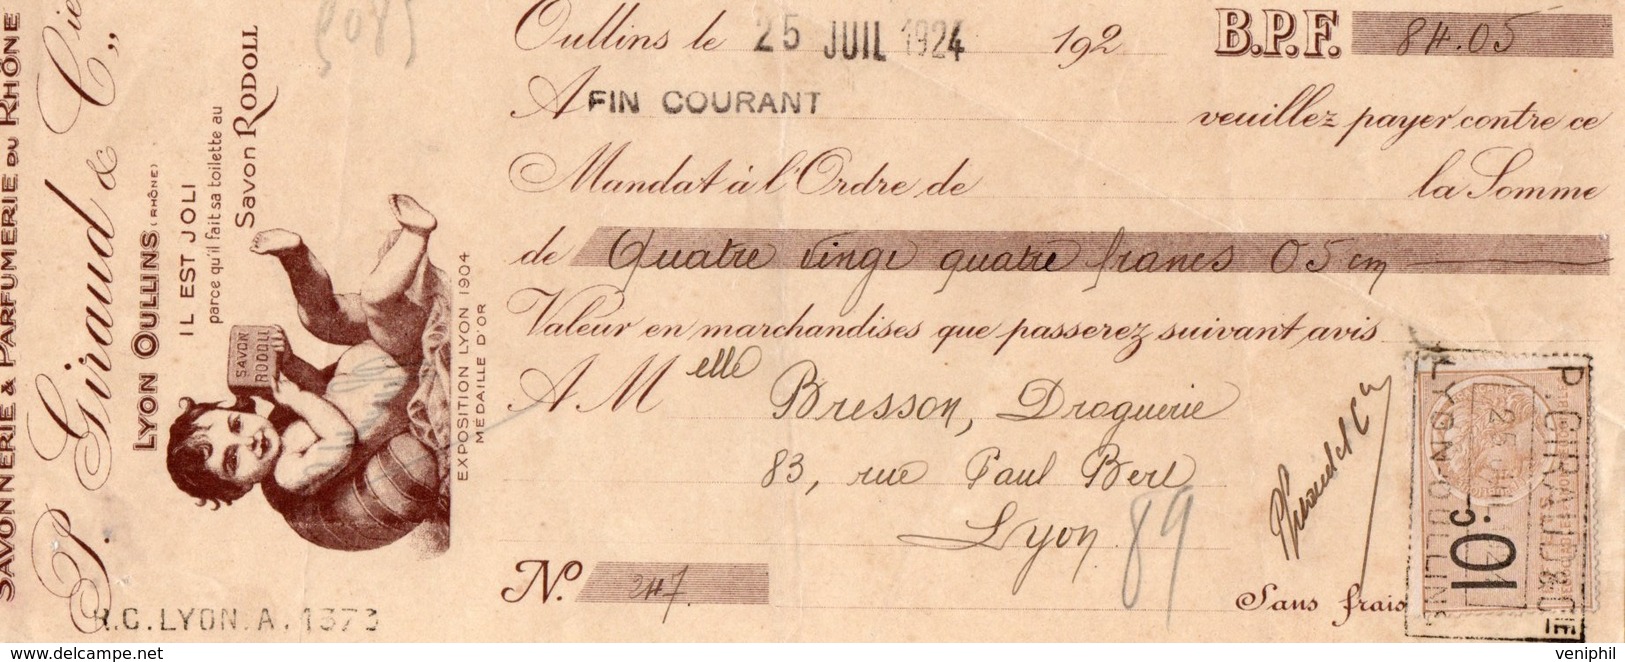 SAVONNERIE & PARFUMERIE DU RHÔNE
P. Giraud & Cie
LYON OULLINS (RHÔNE)
IL EST JOLI
parce qu'il fait sa toilette au
Savon RODOLL
SAVON
RODOLL
EXPOSITION LYON 1904
MÉDAILLE D'OR
R.C. LYON. A. 1373
Oullins le 25 JUIL 1924 192 B.P.F. 84.05
A FIN COURANT veuillez payer contre ce
Mandat à l'Ordre de la Somme
de Quatre vingt quatre francs 05 cm
Valeur en marchandises que passerez suivant avis
A Melle Bresson, Droguerie
83, rue Paul Bert
Lyon
89
No. 247
Sans frais
Giraud & Cie
P. GIRAUD & CIE
25 JUIL
LYON-OULLINS
veniphil